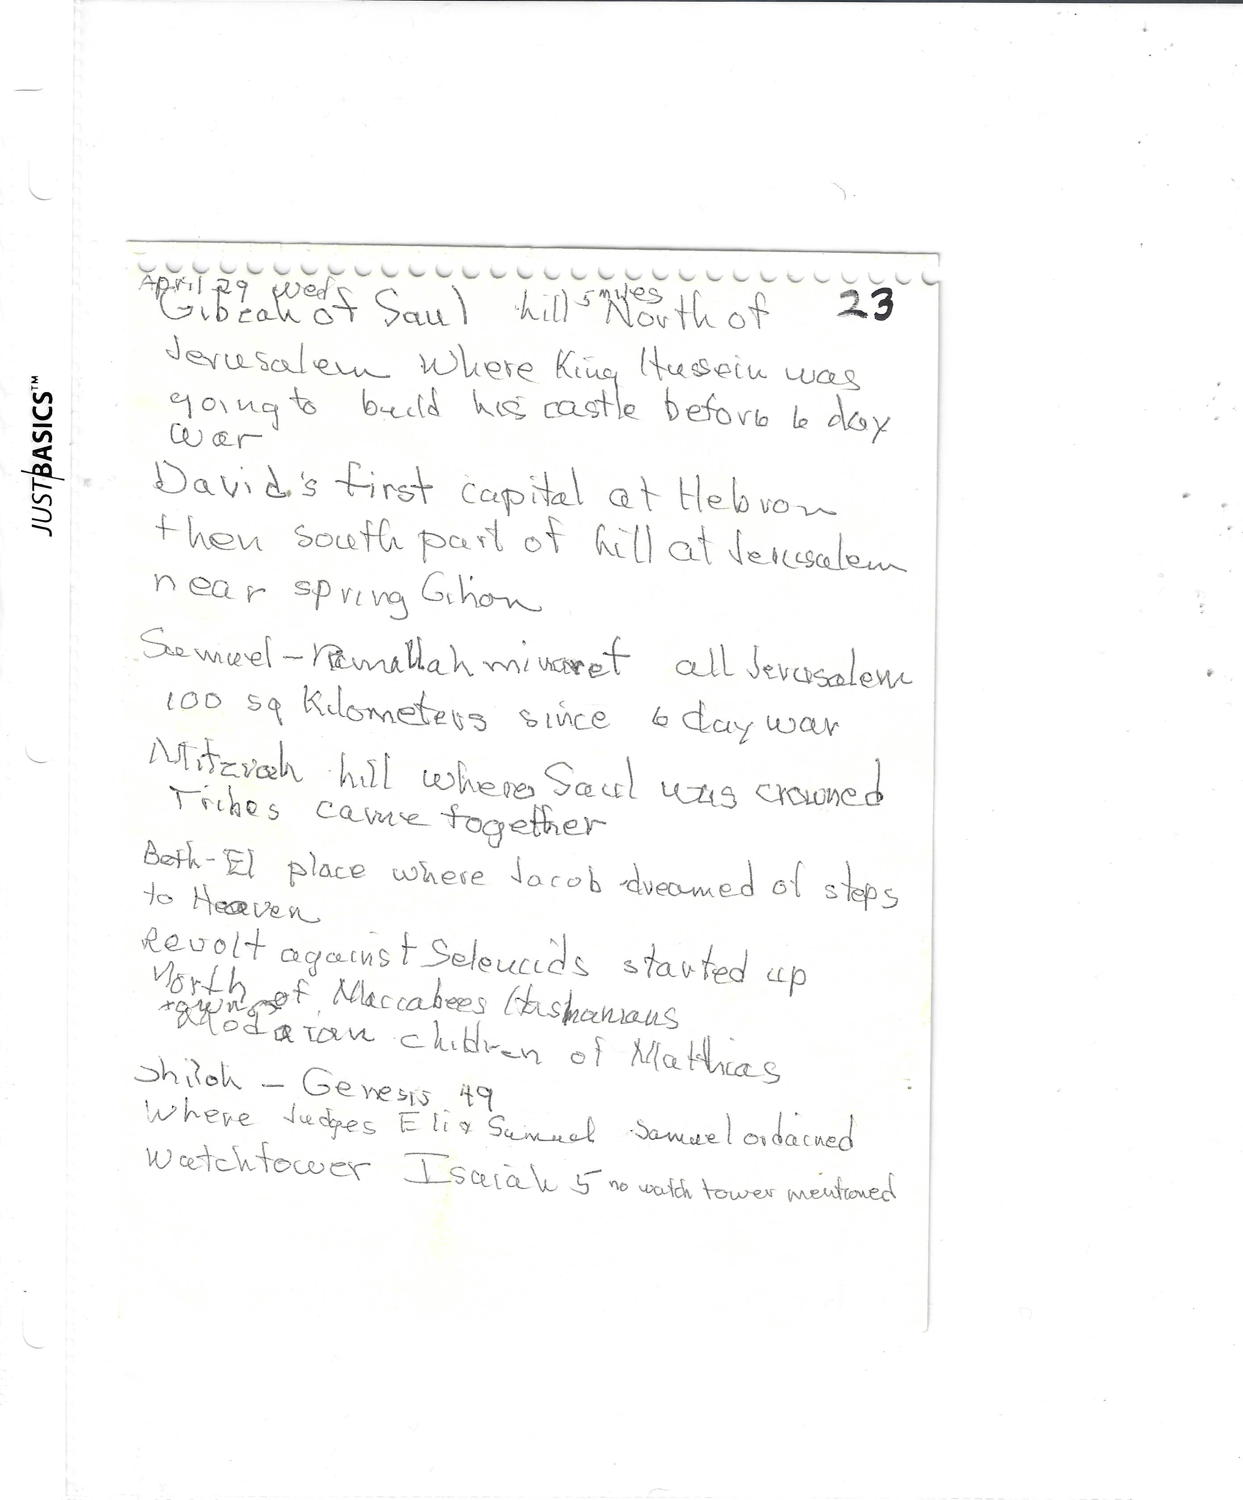 JUSTBASICS™
April 29 Wed
23
Gibeah of Saul hill 5 miles North of
Jerusalem Where King Hussein was
going to build his castle before 6 day
war
David's first capital at Hebron
then south part of hill at Jerusalem
near spring Gihon
Samuel - Ramallah minaret all Jerusalem
100 sq Kilometers since 6 day war
Mitzvah hill where Saul was crowned
Tribes came together
Beth-El place where Jacob dreamed of steps
to Heaven
Revolt against Seleucids started up
North of Maccabees Hasmanians
children of Matthias
Shiloh - Genesis 49
Where Judges Eli & Samuel Samuel ordained
Watchtower Isaiah 5 no watch tower mentioned